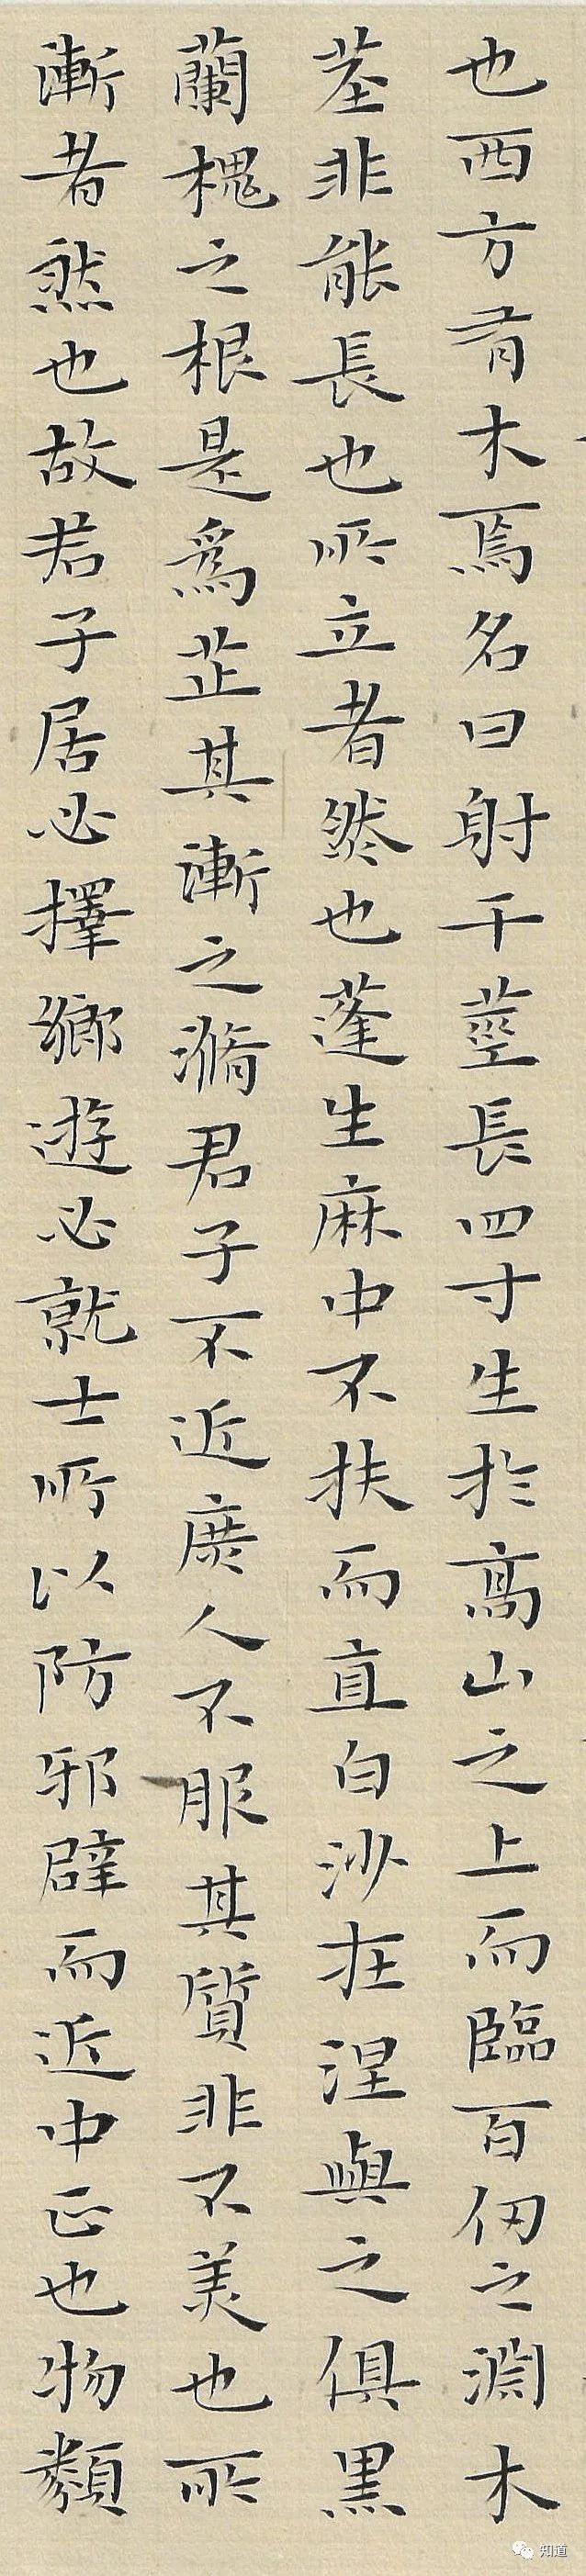 也西方有木焉名曰射干莖長四寸生於高山之上而臨百仞之淵木
莖非能長也所立者然也蓬生麻中不扶而直白沙在涅與之俱黑
蘭槐之根是為芷其漸之滫君子不近庶人不服其質非不美也所
漸者然也故君子居必擇鄉遊必就士所以防邪辟而近中正也物類
知道